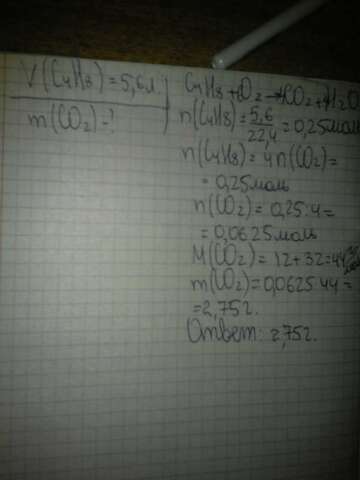 V(C4H8)=5,6л.
m(CO2)-?
C4H8+O2→CO2+H2O
n(C4H8)=5,6/22,4=0,25моль
n(C4H8)=4n(CO2)=
=0,25моль
n(CO2)=0,25:4=
=0,0625моль
M(CO2)=12+32=44г/моль
m(CO2)=0,0625·44=
=2,75г.
Ответ: 2,75г.